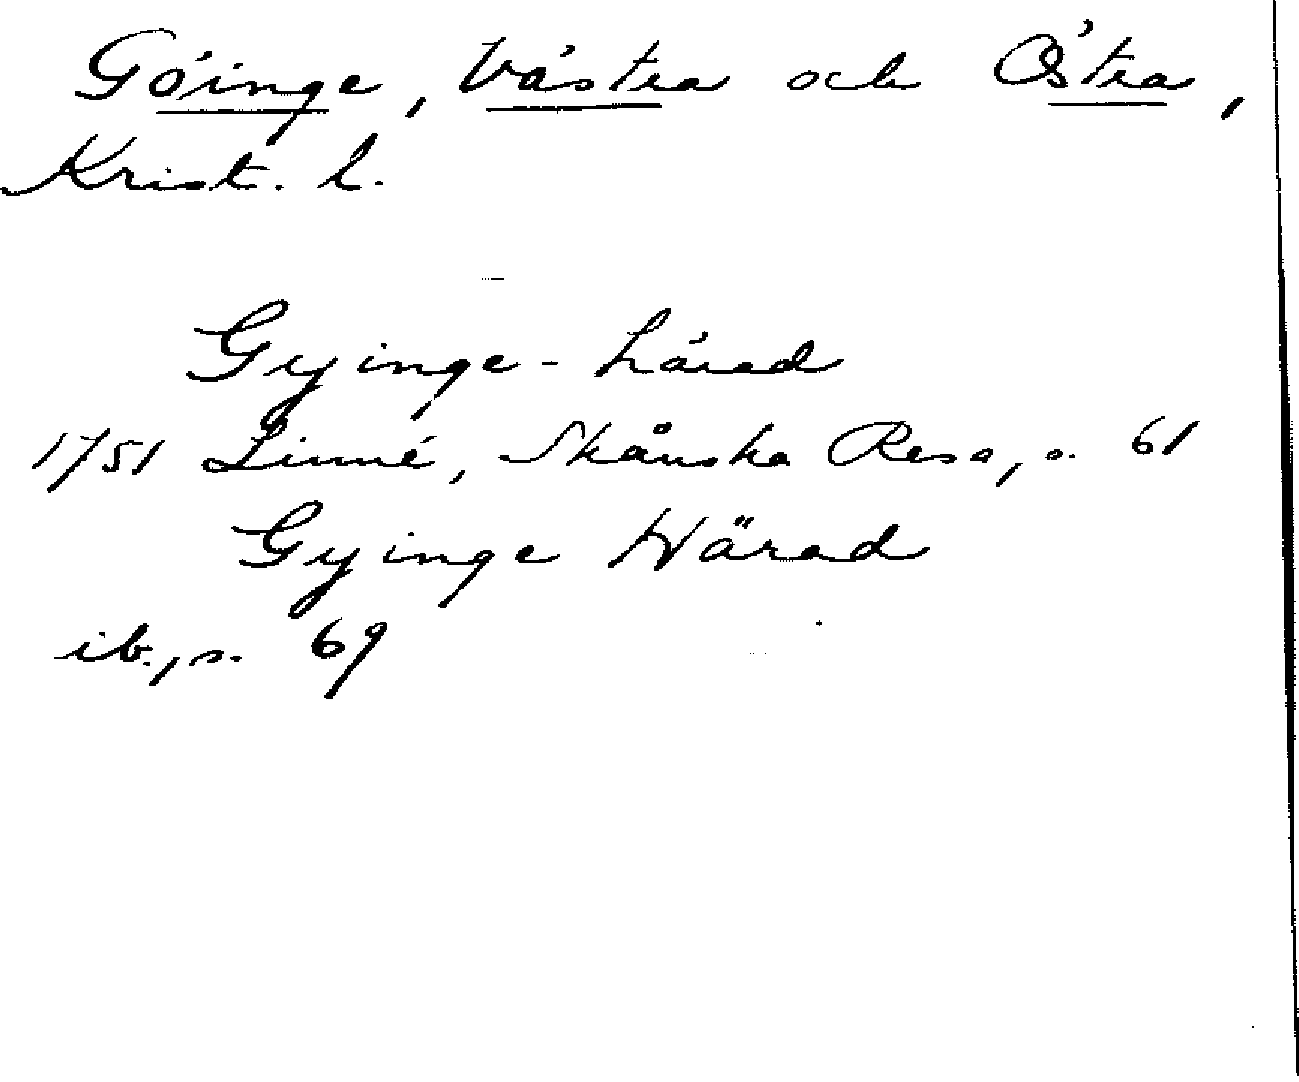 Göinge, Västra och Östra,
Krist. l.
Gyinge-härad
1751 Linné, Skånska Resa, s. 61
Gyinge Härad
ib., s. 69